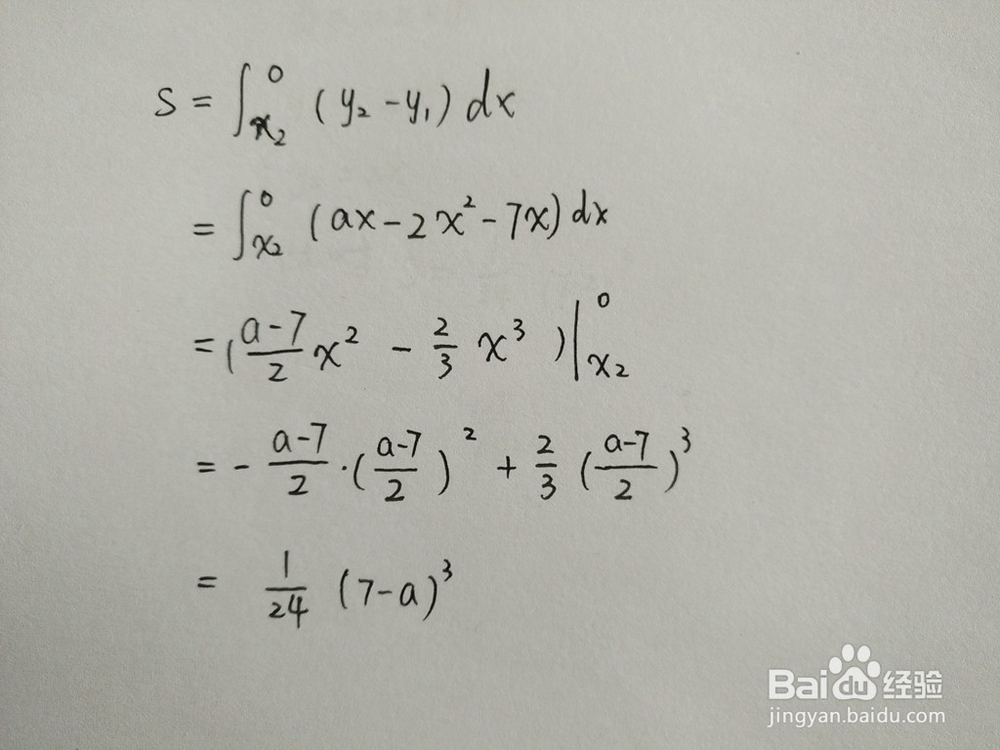 S = ∫_{x₂}^{0} (y₂ - y₁) dx
= ∫_{x₂}^{0} (ax - 2x² - 7x) dx
= (\frac{a-7}{2} x² - \frac{2}{3} x³) |_{x₂}^{0}
= - \frac{a-7}{2} · (\frac{a-7}{2})² + \frac{2}{3} (\frac{a-7}{2})³
= \frac{1}{24} (7-a)³
Baidu经验
jingyan.baidu.com